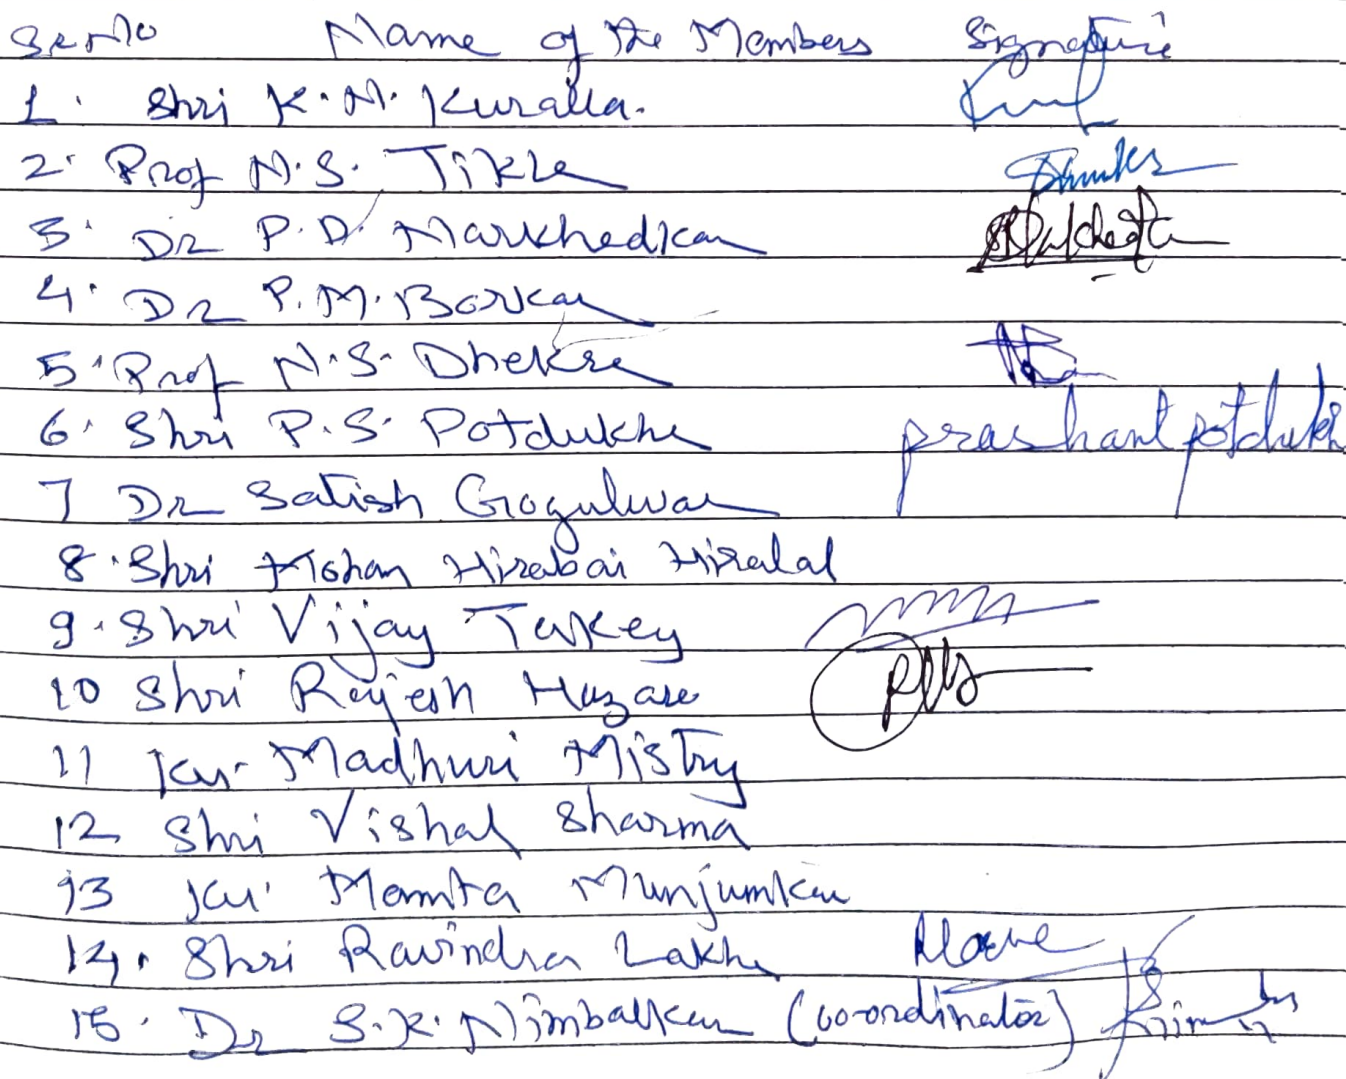 Sr No Name of the Members Signature
1. Shri K. N. Kuralla.
2. Prof N. S. Tikle
3. Dr P. D. Markhedkar
4. Dr P. M. Borkar
5. Prof N. S. Dhekre
6. Shri P. S. Potdukhe prashant potdukhe
7 Dr Satish Gogulwar
8. Shri Mohan Hirabai Hiralal
9. Shri Vijay Takey
10 Shri Rajesh Hazare
11 Ku. Madhuri Mistry
12 Shri Vishal Sharma
13 Ku. Mamta Munjumkar
14. Shri Ravindra Lakhe
15. Dr S. K. Nimbalkar (co-ordinator)